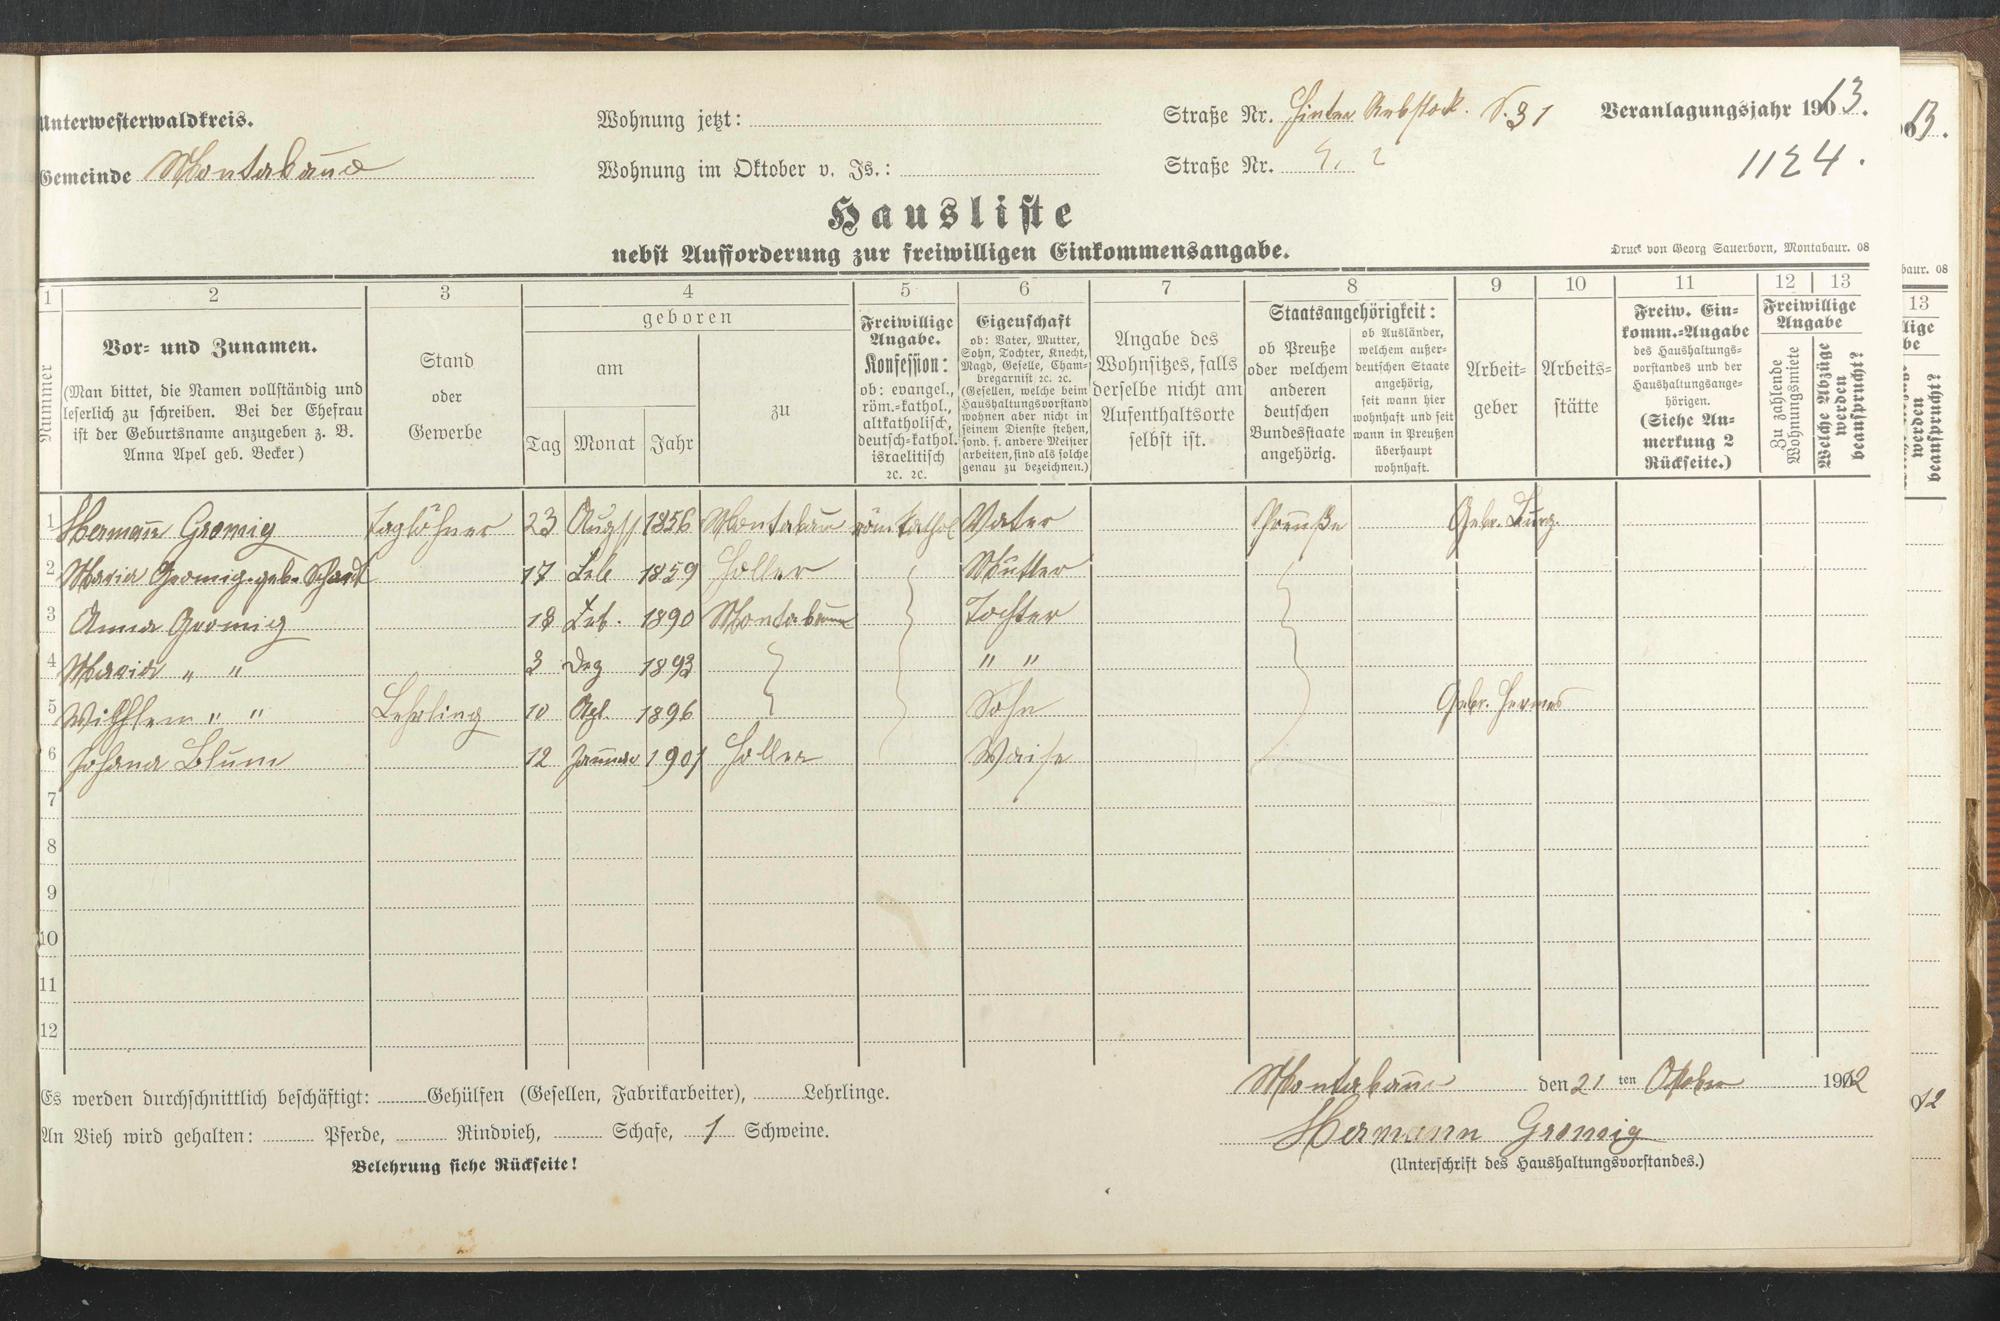 Unterwesterwaldkreis.
Wohnung jetzt:
Straße Nr. Hinter Rebstock. S. 31
Veranlagungsjahr 1913.
Gemeinde Montabaur
Wohnung im Oktober v. Js.:
Straße Nr.
1124.
Hausliste
nebst Aufforderung zur freiwilligen Einkommensangabe.
Druck von Georg Sauerborn, Montabaur. 08
1 2 3 4 5 6 7 8 9 10 11 12 13
Nummer
Vor- und Zunamen.
(Man bittet, die Namen vollständig und
leserlich zu schreiben. Bei der Ehefrau
ist der Geburtsname anzugeben z. B.
Anna Apel geb. Becker)
Stand
oder
Gewerbe
geboren
am
Tag Monat Jahr
zu
Freiwillige
Angabe.
Konfession:
ob: evangel.,
röm.-kathol.,
altkatholisch,
deutsch-kathol.
israelitisch
ꝛc. ꝛc.
Eigenschaft
ob: Vater, Mutter,
Sohn, Tochter, Knecht,
Magd, Geselle, Cham-
bregarnist ꝛc. ꝛc.
(Gesellen, welche beim
Haushaltungsvorstand
wohnen aber nicht in
seinem Dienste stehen,
sond. f. andere Meister
arbeiten, sind als solche
genau zu bezeichnen.)
Angabe des
Wohnsitzes, falls
derselbe nicht am
Aufenthaltsorte
selbst ist.
Staatsangehörigkeit:
ob Preuße
oder welchem
anderen
deutschen
Bundesstaate
angehörig.
ob Ausländer,
welchem außer-
deutschen Staate
angehörig,
seit wann hier
wohnhaft und seit
wann in Preußen
überhaupt
wohnhaft.
Arbeit-
geber
Arbeits-
stätte
Freiw. Ein-
komm.-Angabe
des Haushaltungs-
vorstandes und der
Haushaltungsange-
hörigen.
(Siehe An-
merkung 2
Rückseite.)
Freiwillige
Angabe
Zu zahlende
Wohnungsmiete
Welche Abzüge
werden
beansprucht?
1 Hermann Gromig Taglöhner 23 August 1856 Montabaur röm kathol Vater Preuße Gebr. Burg.
2 Maria Gromig geb. 17 Feb 1859 Holler Mutter
3 Anna Gromig 18 Feb. 1890 Montabaur Tochter
4 Maria " " 3 Dez 1893 " "
5 Wilhelm " " Lehrling 10 1896 Sohn Gebr. Hermes
6 Johana Blum 12 Januar 1901 Holler Waise
7
8
9
10
11
12
Es werden durchschnittlich beschäftigt: Gehülfen (Gesellen, Fabrikarbeiter), Lehrlinge.
An Vieh wird gehalten: Pferde, Rindvieh, Schafe, 1 Schweine.
Belehrung siehe Rückseite!
Montabaur den 21 ten Oktober 1912
Hermann Gromig
(Unterschrift des Haushaltungsvorstandes.)
13.
baur. 08
13
lige
be
werden
beansprucht?
12